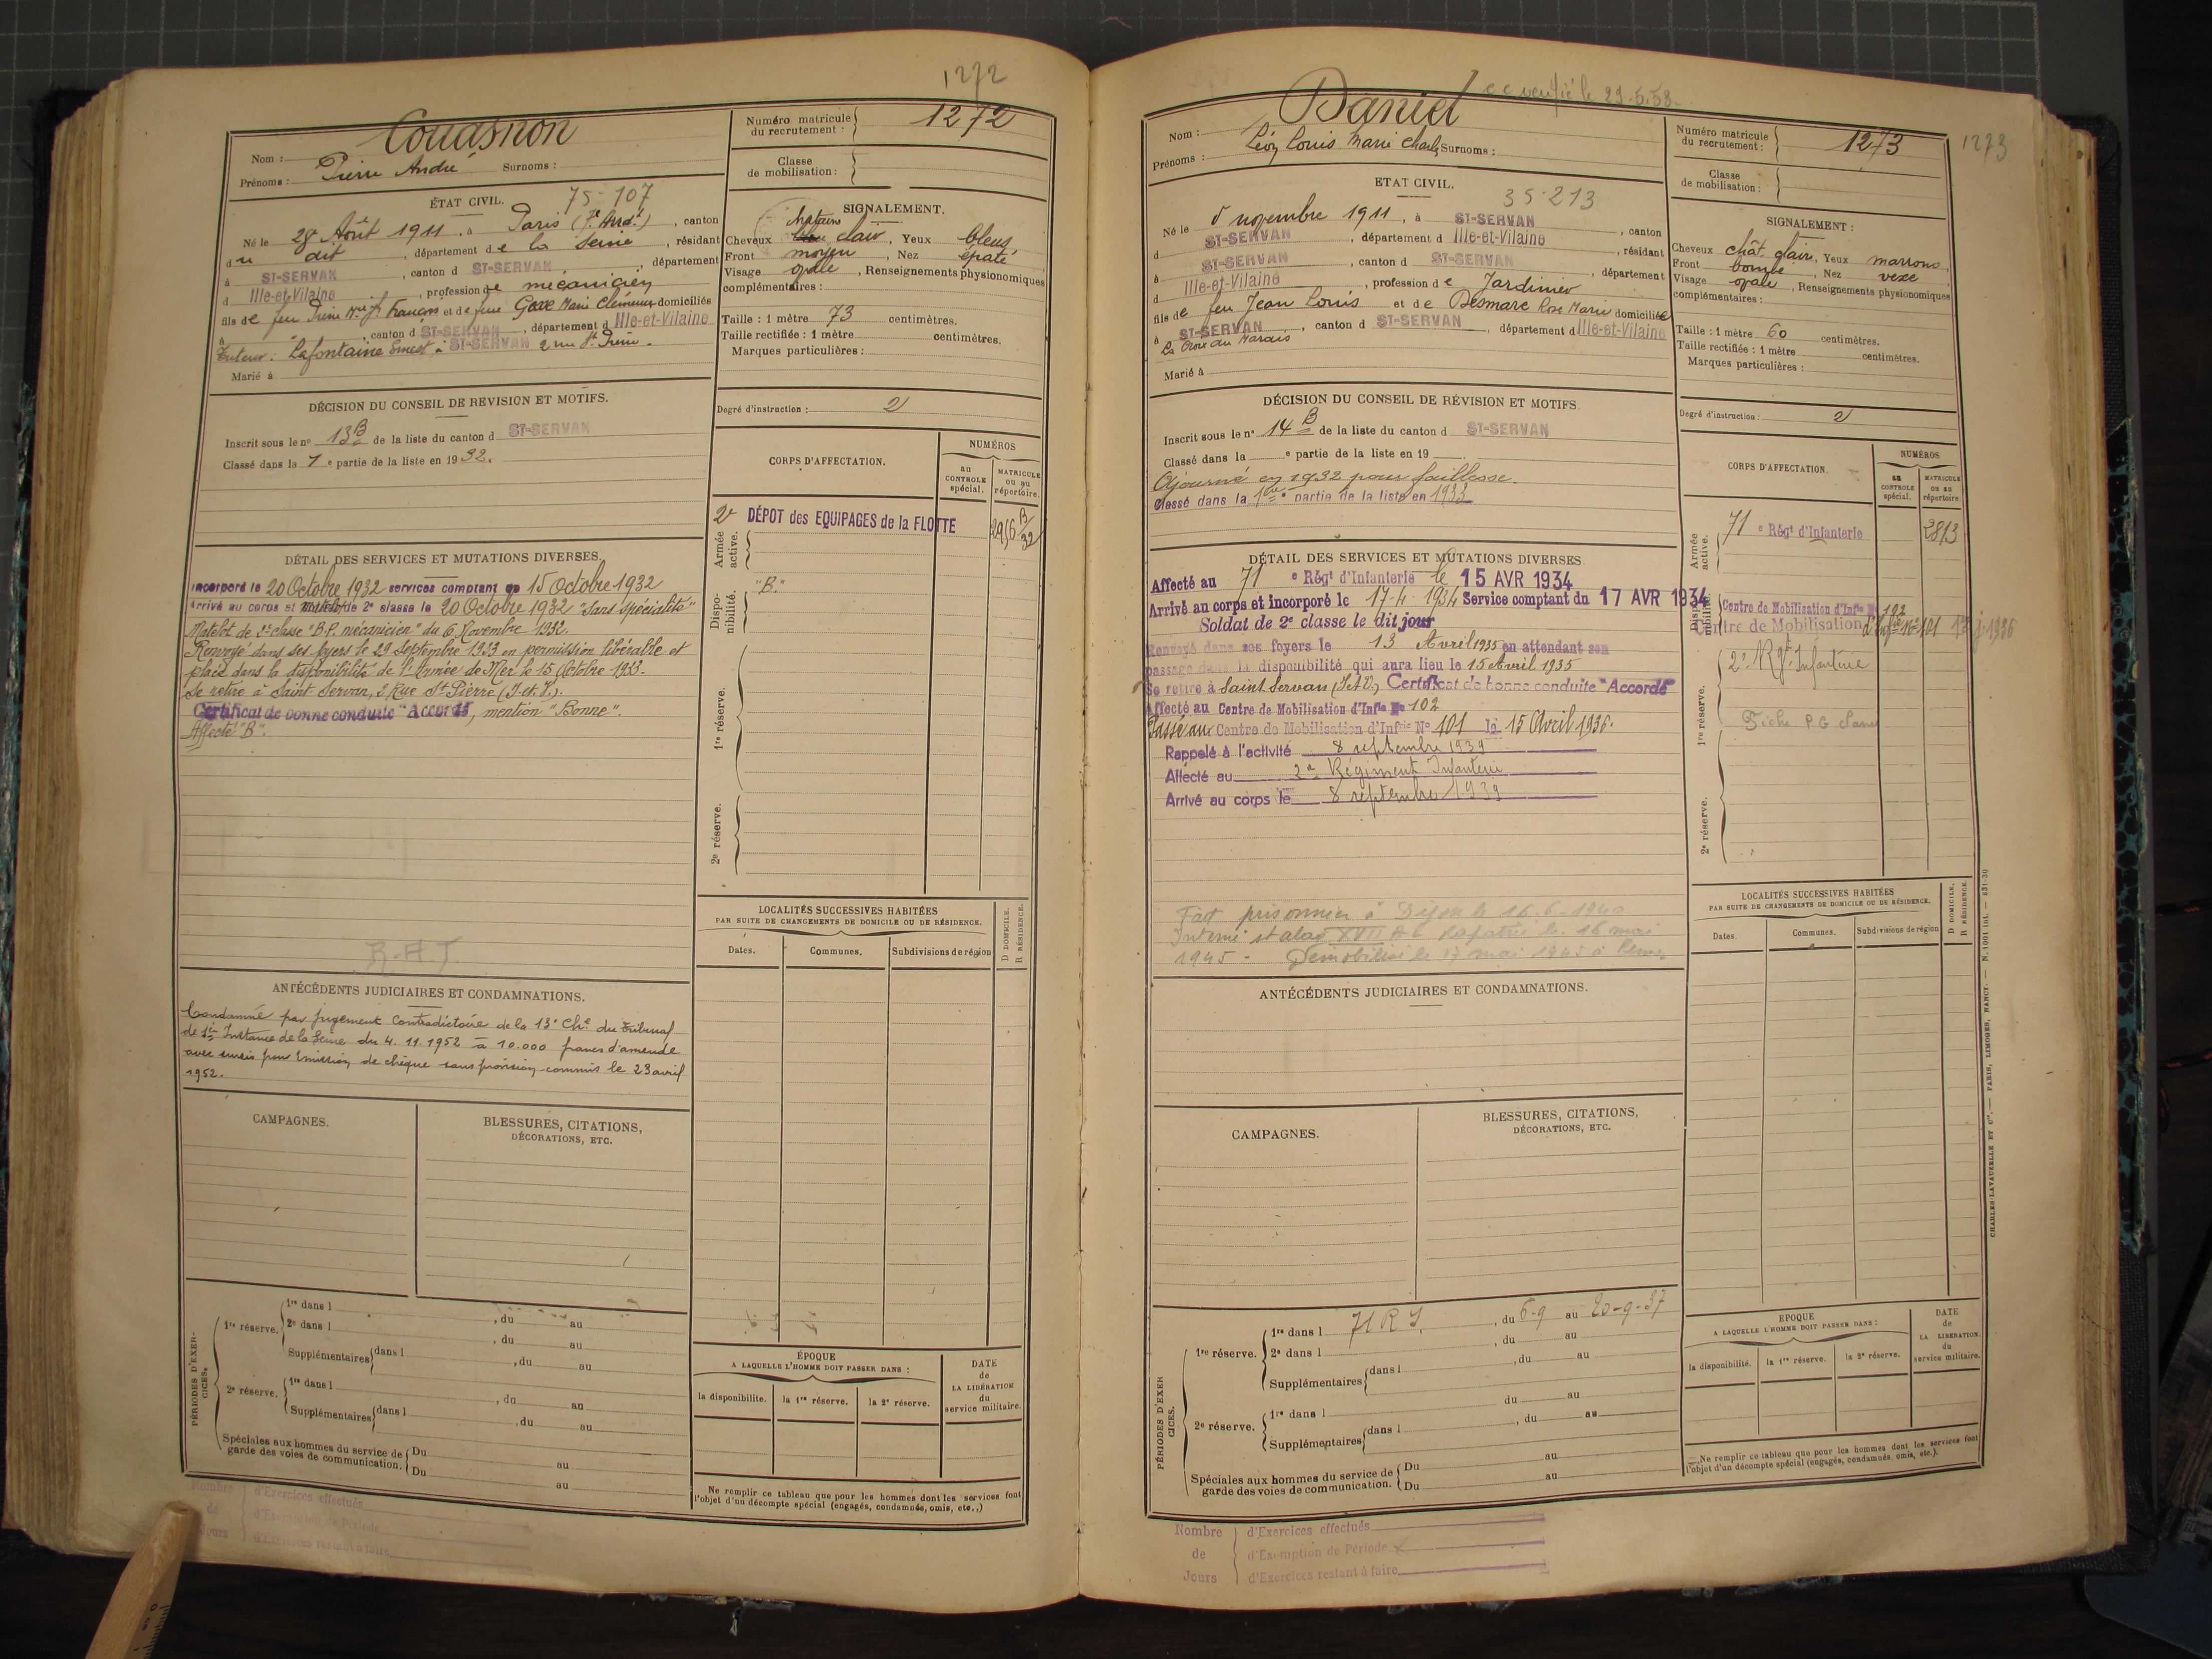 1272
Couasnon
Nom :
Prénoms : Pierre André Surnoms :
Numéro matricule du recrutement : 1272
Classe de mobilisation :
ÉTAT CIVIL.
75-107
Né le 28 Août 1911, à Paris (7e Arrdt), canton
du dit, département de la Seine, résidant
à ST-SERVAN, canton d ST-SERVAN, département
d Ille-et-Vilaine, profession de mécanicien
fils de feu Pierre Mie Jh François et de feue Marie Clémence domiciliés
à " , canton d ST-SERVAN, département d Ille-et-Vilaine
Tuteur : Lafontaine Ernest à ST-SERVAN 2 rue St Pierre.
Marié à
SIGNALEMENT.
Cheveux chatains clair, Yeux bleus,
Front moyen, Nez épaté
Visage ovale, Renseignements physionomiques
complémentaires :
Taille : 1 mètre 73 centimètres.
Taille rectifiée : 1 mètre centimètres.
Marques particulières :
DÉCISION DU CONSEIL DE REVISION ET MOTIFS.
Inscrit sous le no 13 B de la liste du canton d ST-SERVAN
Classé dans la 1e partie de la liste en 1932.
Degré d'instruction : 2
CORPS D'AFFECTATION.
NUMÉROS
au CONTROLE spécial.
MATRICULE ou au répertoire.
Armée active.
2e DÉPOT des EQUIPAGES de la FLOTTE
2956 B/32
Disponibilité.
"B."
1re réserve.
2e réserve.
DÉTAIL DES SERVICES ET MUTATIONS DIVERSES.
Incorporé le 20 Octobre 1932 services comptant du 15 Octobre 1932
Arrivé au corps et matelot de 2e classe le 20 Octobre 1932 "Sans spécialité"
Matelot de 2e classe "B.P. mécanicien" du 6 Novembre 1932.
Renvoyé dans ses foyers le 29 Septembre 1933 en permission libérable et
placé dans la disponibilité de l'Armée de Mer le 15 Octobre 1933.
Se retire à Saint Servan, 2 Rue St Pierre (I. et V.).
Certificat de bonne conduite "Accordé", mention "Bonne".
Affecté "B".
R.A.T
ANTÉCÉDENTS JUDICIAIRES ET CONDAMNATIONS.
Condamné par jugement Contradictoire de la 13e Che du Tribunal
de 1ère Instance de la Seine du 4. 11. 1952 à 10.000 francs d'amende
avec sursis pour émission de chèque sans provision commis le 23 avril
1952.
LOCALITÉS SUCCESSIVES HABITÉES
PAR SUITE DE CHANGEMENTS DE DOMICILE OU DE RÉSIDENCE.
Dates.
Communes.
Subdivisions de région
D DOMICILE.
R RÉSIDENCE.
CAMPAGNES.
BLESSURES, CITATIONS,
DÉCORATIONS, ETC.
PÉRIODES D'EXERCICES.
1re réserve.
1re dans l , du au
2e dans l , du au
Supplémentaires dans l , du au
2e réserve.
1re dans l , du au
Supplémentaires dans l , du au
Spéciales aux hommes du service de
garde des voies de communication.
Du au
Du au
ÉPOQUE
A LAQUELLE L'HOMME DOIT PASSER DANS :
la disponibilité.
la 1re réserve.
la 2e réserve.
DATE de LA LIBÉRATION du service militaire.
Ne remplir ce tableau que pour les hommes dont les services font
l'objet d'un décompte spécial (engagés, condamnés, omis, etc.,)
Nombre de Jours
d'Exercices effectués
d'Exemption de Période
d'Exercices restant à faire
c c verifié le 29.5.58
Daniel
Nom :
Prénoms : Léon Louis Marie Charles Surnoms :
Numéro matricule du recrutement : 1273
1273
Classe de mobilisation :
ETAT CIVIL.
35-213
Né le 5 novembre 1911, à ST-SERVAN, canton
d ST-SERVAN, département d Ille-et-Vilaine, résidant
à ST-SERVAN, canton d ST-SERVAN, département
d Ille-et-Vilaine, profession de Jardinier
fils de feu Jean Louis et de Desmarc Rose Marie domiciliée
à ST-SERVAN, canton d ST-SERVAN, département d Ille-et-Vilaine
La Croix du Marais
Marié à
SIGNALEMENT :
Cheveux chât. clair, Yeux marrons,
Front bombé, Nez vexe
Visage ovale, Renseignements physionomiques
complémentaires :
Taille : 1 mètre 60 centimètres.
Taille rectifiée : 1 mètre centimètres.
Marques particulières :
DÉCISION DU CONSEIL DE RÉVISION ET MOTIFS
Inscrit sous le no 14 B de la liste du canton d ST-SERVAN
Classé dans la e partie de la liste en 19
Ajourné en 1932 pour faiblesse.
Classé dans la 1ère partie de la liste en 1933
Degré d'instruction : 2
CORPS D'AFFECTATION.
NUMÉROS
au CONTROLE spécial.
MATRICULE ou au répertoire.
Armée active.
71e Régt d'Infanterie
3813
Disponibilité.
Centre de Mobilisation d'Infie No 102
Centre de Mobilisation d'Infie No 101
1re réserve.
2e Rgt Infanterie
Fiche P G
2e réserve.
DÉTAIL DES SERVICES ET MUTATIONS DIVERSES
Affecté au 71e Régt d'Infanterie le 15 AVR 1934
Arrivé au corps et incorporé le 17-4-1934 Service comptant du 17 AVR 1934
Soldat de 2e classe le dit jour
Renvoyé dans ses foyers le 13 Avril 1935 en attendant son
passage dans la disponibilité qui aura lieu le 15 Avril 1935
Se retire à Saint Servan (I.et V.) Certificat de bonne conduite "Accordé"
Affecté au Centre de Mobilisation d'Infie No 102
Passé au Centre de Mobilisation d'Infrie No 101 le 15 Avril 1936.
Rappelé à l'activité 8 septembre 1939
Affecté au 2e Régiment Infanterie
Arrivé au corps le 8 septembre 1939
Fait prisonnier à Dijon le 16-6-1940
Interné stalag XVII A Rapatrié le 16 mai
1945 - Démobilisé le 17 mai 1945 à Rennes
ANTÉCÉDENTS JUDICIAIRES ET CONDAMNATIONS.
LOCALITÉS SUCCESSIVES HABITÉES
PAR SUITE DE CHANGEMENTS DE DOMICILE OU DE RÉSIDENCE.
Dates.
Communes.
Subdivisions de région
D DOMICILE.
R RÉSIDENCE.
CAMPAGNES.
BLESSURES, CITATIONS,
DÉCORATIONS, ETC.
PÉRIODES D'EXERCICES.
1re réserve.
1re dans l 71 R I, du 6-9 au 20-9-37
2e dans l , du au
Supplémentaires dans l , du au
2e réserve.
1re dans l du au
Supplémentaires dans l , du au
Spéciales aux hommes du service de
garde des voies de communication.
Du au
Du au
EPOQUE
A LAQUELLE L'HOMME DOIT PASSER DANS :
la disponibilité.
la 1re réserve.
la 2e réserve.
DATE de LA LIBERATION du service militaire.
Ne remplir ce tableau que pour les hommes dont les services font
l'objet d'un décompte spécial (engagés, condamnés, omis, etc.).
Nombre de Jours
d'Exercices effectués
d'Exemption de Période
d'Exercices restant à faire
CHARLES-LAVAUZELLE ET Cie. — PARIS, LIMOGES, NANCY. — N. 1001 (io). — 131-30